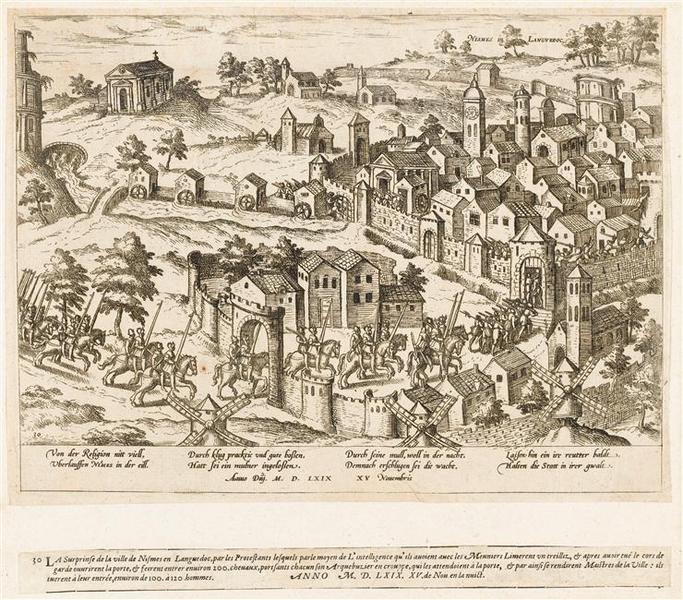 NISMES IN LANGUEDOC
30
Von der Religion nitt viell,
Uberlauffen Nimes in der eill.
Durch klug practic vnd gute bossen,
Hatt sei ein mulner ingelossen.
Durch seine mull, woll in der nacht,
Demnach erschlugen sei die wacht.
Laissen hin ein ire reutter baldt,
Halten die Statt in irer gwalt.
Anno Dñj. M. D. LXIX XV Nouembris
30 LA Surprinse de la ville de Nismes en Languedoc, par les Protestants lesquels par le moyen de L'intelligence qu'ils auoient auec les Meuniers Limerent vn treillez, & apres auoir tué le cors de
garde ouurirent la porte, & feerent entrer enuiron 200. cheuaux, portsants chacun son Arquebuzier en crouppe, qui les attendoient à la porte, & par ainsi se rendirent Maistres de la Ville : ils
tuerent à leur entrée, enuiron de 100. à 120 hommes. ANNO M. D. LXIX. XV. de Nou en la nuict.